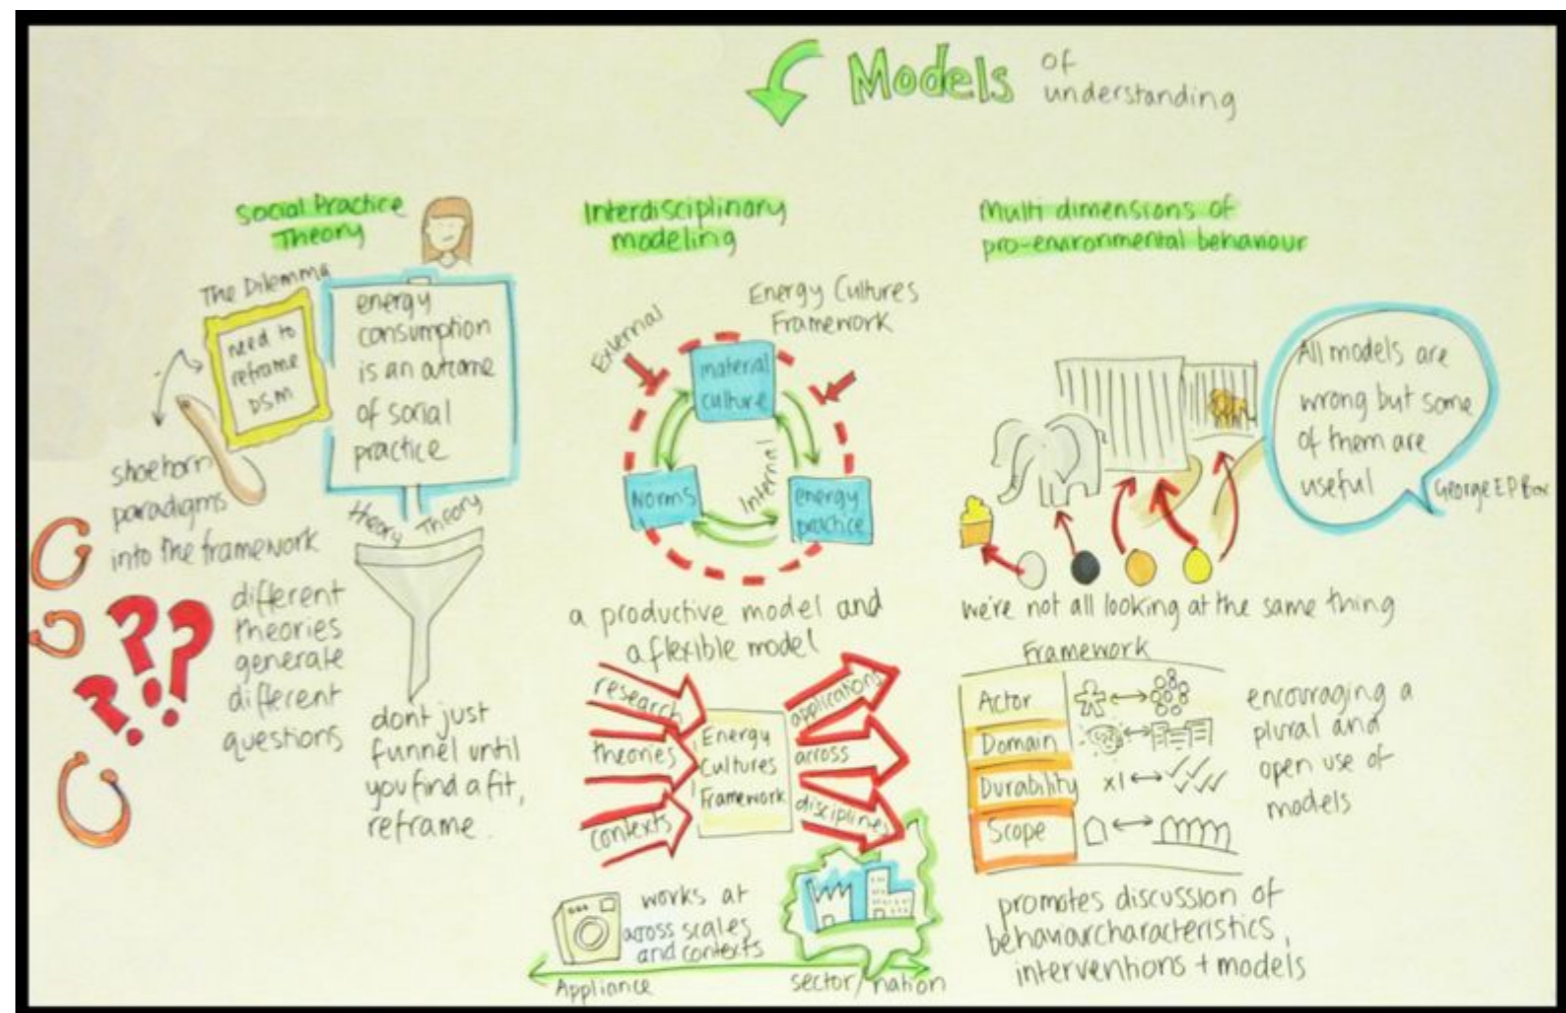 Models of
understanding
Social Practice
Theory
The Dilemma
need to
reframe
DSM
energy
consumption
is an outcome
of social
practice
shoehorn
paradigms
into the framework
theory Theory
different
theories
generate
different
questions
dont just
funnel until
you find a fit,
reframe.
Interdisciplinary
modeling
Energy Cultures
Framework
External
material
culture
Internal
Norms
energy
practice
a productive model and
a flexible model
research
theories
contexts
Energy
Cultures
Framework
applications
across
disciplines
works at
across scales
and contexts
Appliance
sector/nation
Multi dimensions of
pro-environmental behaviour
All models are
wrong but some
of them are
useful
George E P Box
we're not all looking at the same thing
Framework
Actor
Domain
Durability x1
Scope
encouraging a
plural and
open use of
models
promotes discussion of
behaviour characteristics,
interventions + models